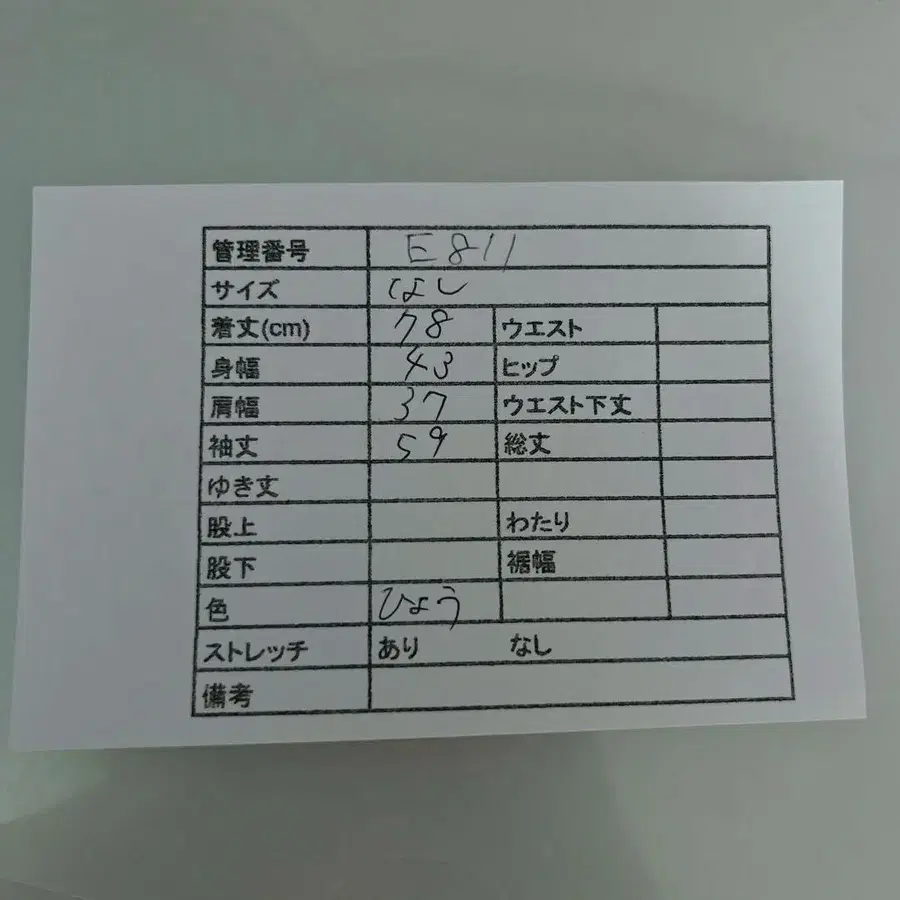 管理番号 E811
サイズ なし
着丈(cm) 78 ウエスト
身幅 43 ヒップ
肩幅 37 ウエスト下丈
袖丈 59 総丈
ゆき丈
股上 わたり
股下 裾幅
色 ひょう
ストレッチ あり なし
備考